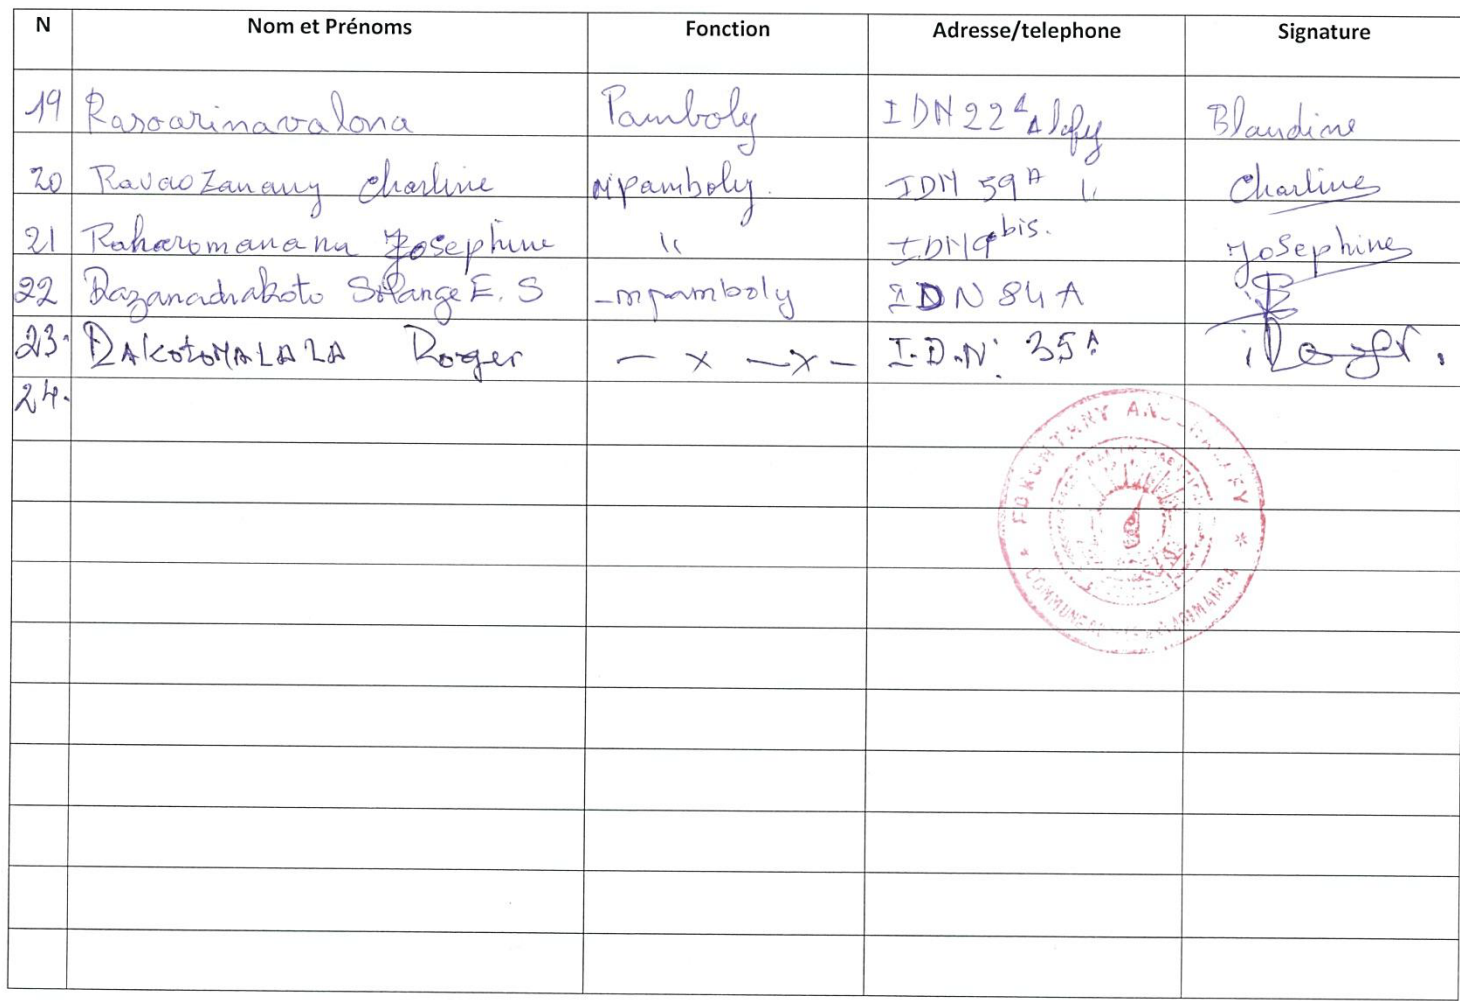 N Nom et Prénoms Fonction Adresse/telephone Signature
19 Rasoarinavalona Pamboly IDN 22 A Blandine
20 Ravaozanany Charline Mpamboly. IDN 59 A " Charline
21 Raharomanana Josephine " IDN 9 bis. Josephine
22 Razanadrakoto Solange E. S -mpamboly IDN 84 A
23. RAKotoMALALA Roger — x — x — I.D.N: 35A Roger.
24.
FOKONTANY
COMMUNE